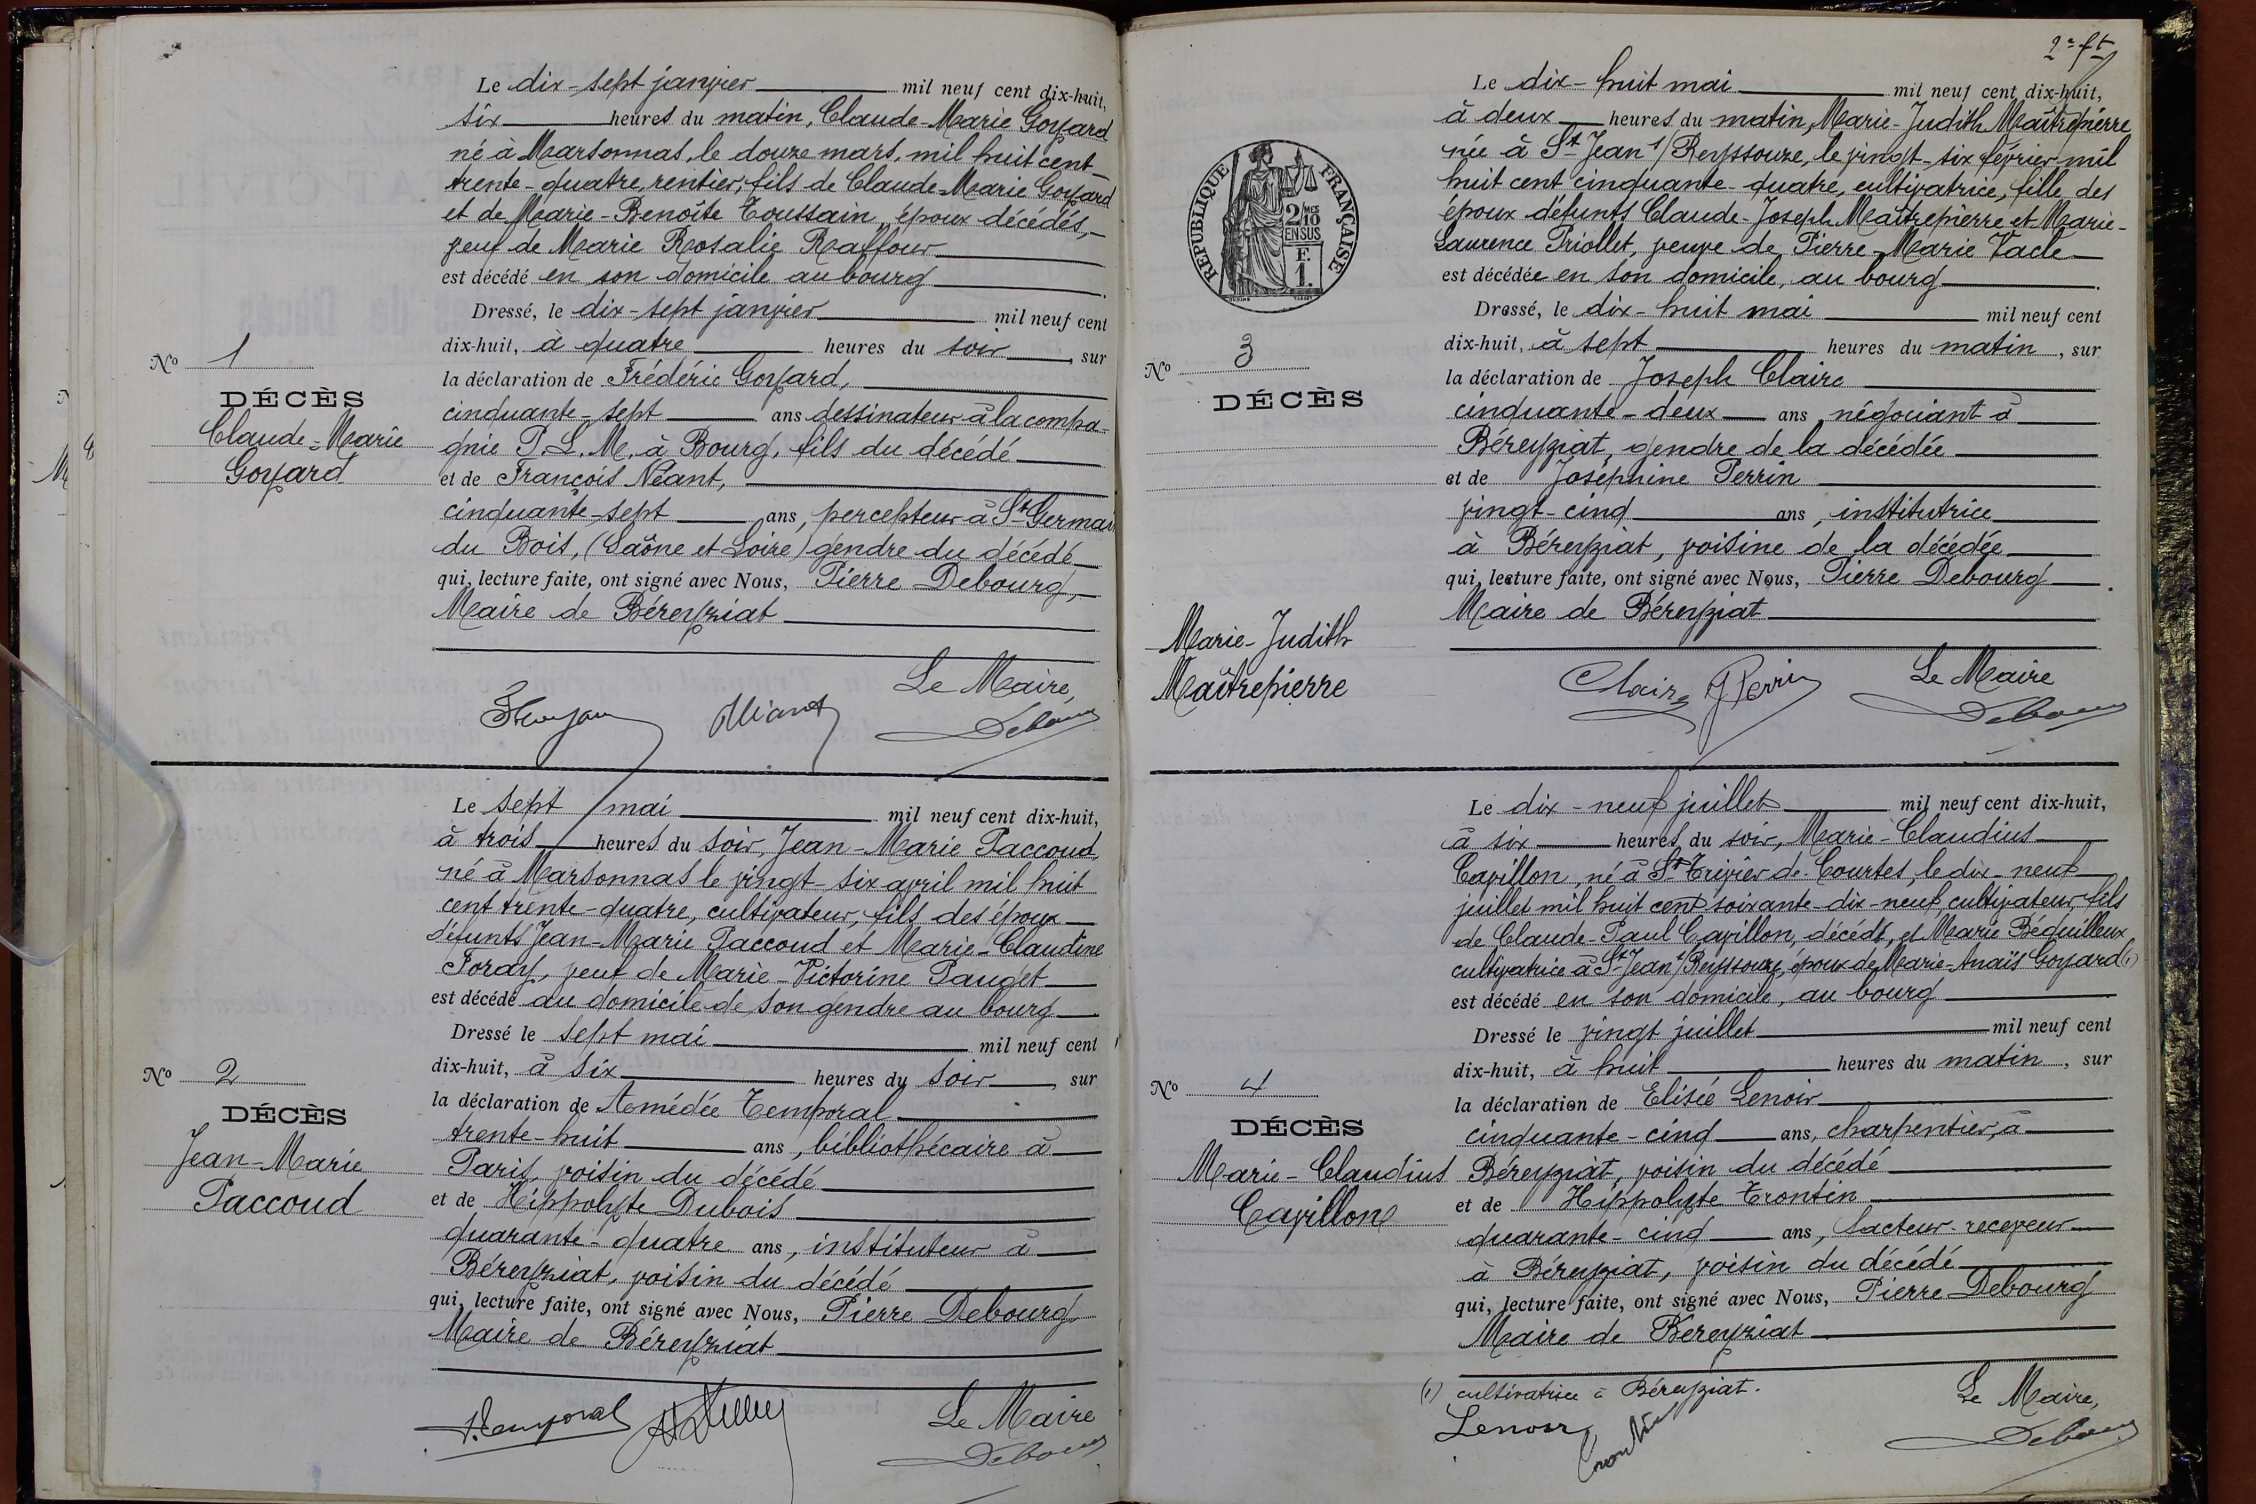 Le dix-sept janvier mil neuf cent dix-huit,
six heures du matin, Claude-Marie Goyard
né à Marsonnas, le douze mars, mil huit cent
trente-quatre, rentier, fils de Claude-Marie Goyard
et de Marie-Benoîte Toussain, époux décédés,
veuf de Marie Rosalie Raffour
est décédé en son domicile au bourg
Dressé, le dix-sept janvier mil neuf cent
dix-huit, à quatre heures du soir, sur
la déclaration de Frédéric Goyard,
cinquante-sept ans dessinateur à la compa-
gnie P.L.M. à Bourg, fils du décédé
et de François Néant,
cinquante-sept ans, percepteur à St-Germain
du Bois, (Saône et Loire) gendre du décédé
qui, lecture faite, ont signé avec Nous, Pierre Debourg,
Maire de Béreyziat
Le Maire,
Debourg
No 1
DÉCÈS
Claude-Marie
Goyard
Le sept mai mil neuf cent dix-huit,
à trois heures du soir, Jean-Marie Paccoud,
né à Marsonnas le vingt-six avril mil huit
cent trente-quatre, cultivateur, fils des époux
défunts Jean-Marie Paccoud et Marie-Claudine
Foray, veuf de Marie-Victorine Pauget
est décédé au domicile de son gendre au bourg
Dressé le sept mai mil neuf cent
dix-huit, à six heures du soir, sur
la déclaration de Amédée Temporal
trente-huit ans, bibliothécaire à
Paris, voisin du décédé
et de Hippolyte Dubois
quarante-quatre ans, instituteur à
Béreyziat, voisin du décédé
qui, lecture faite, ont signé avec Nous, Pierre Debourg
Maire de Béreyziat
A. Temporal
Le Maire
Debourg
No 2
DÉCÈS
Jean-Marie
Paccoud
2e ft
RÉPUBLIQUE FRANÇAISE
2/10 MES
EN SUS
F.
1.
Le dix-huit mai mil neuf cent dix-huit,
à deux heures du matin, Marie-Judith Maîtrepierre
née à St-Jean s/ Reyssouze, le vingt-six février mil
huit cent cinquante-quatre, cultivatrice, fille des
époux défunts Claude-Joseph Maîtrepierre et Marie-
Laurence Priollet, veuve de Pierre-Marie Vacle
est décédée en son domicile, au bourg
Dressé, le dix-huit mai mil neuf cent
dix-huit, à sept heures du matin, sur
la déclaration de Joseph Claire
cinquante-deux ans, négociant à
Béreyziat, gendre de la décédée
et de Joséphine Perrin
vingt-cinq ans, institutrice
à Béreyziat, voisine de la décédée
qui, lecture faite, ont signé avec Nous, Pierre Debourg
Maire de Béreyziat
Claire J Perrin
Le Maire
Debourg
No 3
DÉCÈS
Marie-Judith
Maîtrepierre
Le dix-neuf juillet mil neuf cent dix-huit,
à six heures du soir, Marie-Claudius
Cavillon, né à St-Trivier de Courtes, le dix-neuf
juillet mil huit cent soixante-dix-neuf, cultivateur, fils
de Claude-Paul Cavillon, décédé, et Marie Béquilleux,
cultivatrice à St-Jean s/ Reyssouze, époux de Marie-Anaïs Goyard (1)
est décédé en son domicile, au bourg
Dressé le vingt juillet mil neuf cent
dix-huit, à huit heures du matin, sur
la déclaration de Elisée Lenoir
cinquante-cinq ans, charpentier, à
Béreyziat, voisin du décédé
et de Hippolyte Trontin
quarante-cinq ans, facteur-receveur
à Béreyziat, voisin du décédé
qui, lecture faite, ont signé avec Nous, Pierre Debourg
Maire de Béreyziat
(1) cultivatrice à Béreyziat.
Lenoir Trontin
Le Maire,
Debourg
No 4
DÉCÈS
Marie-Claudius
Cavillon